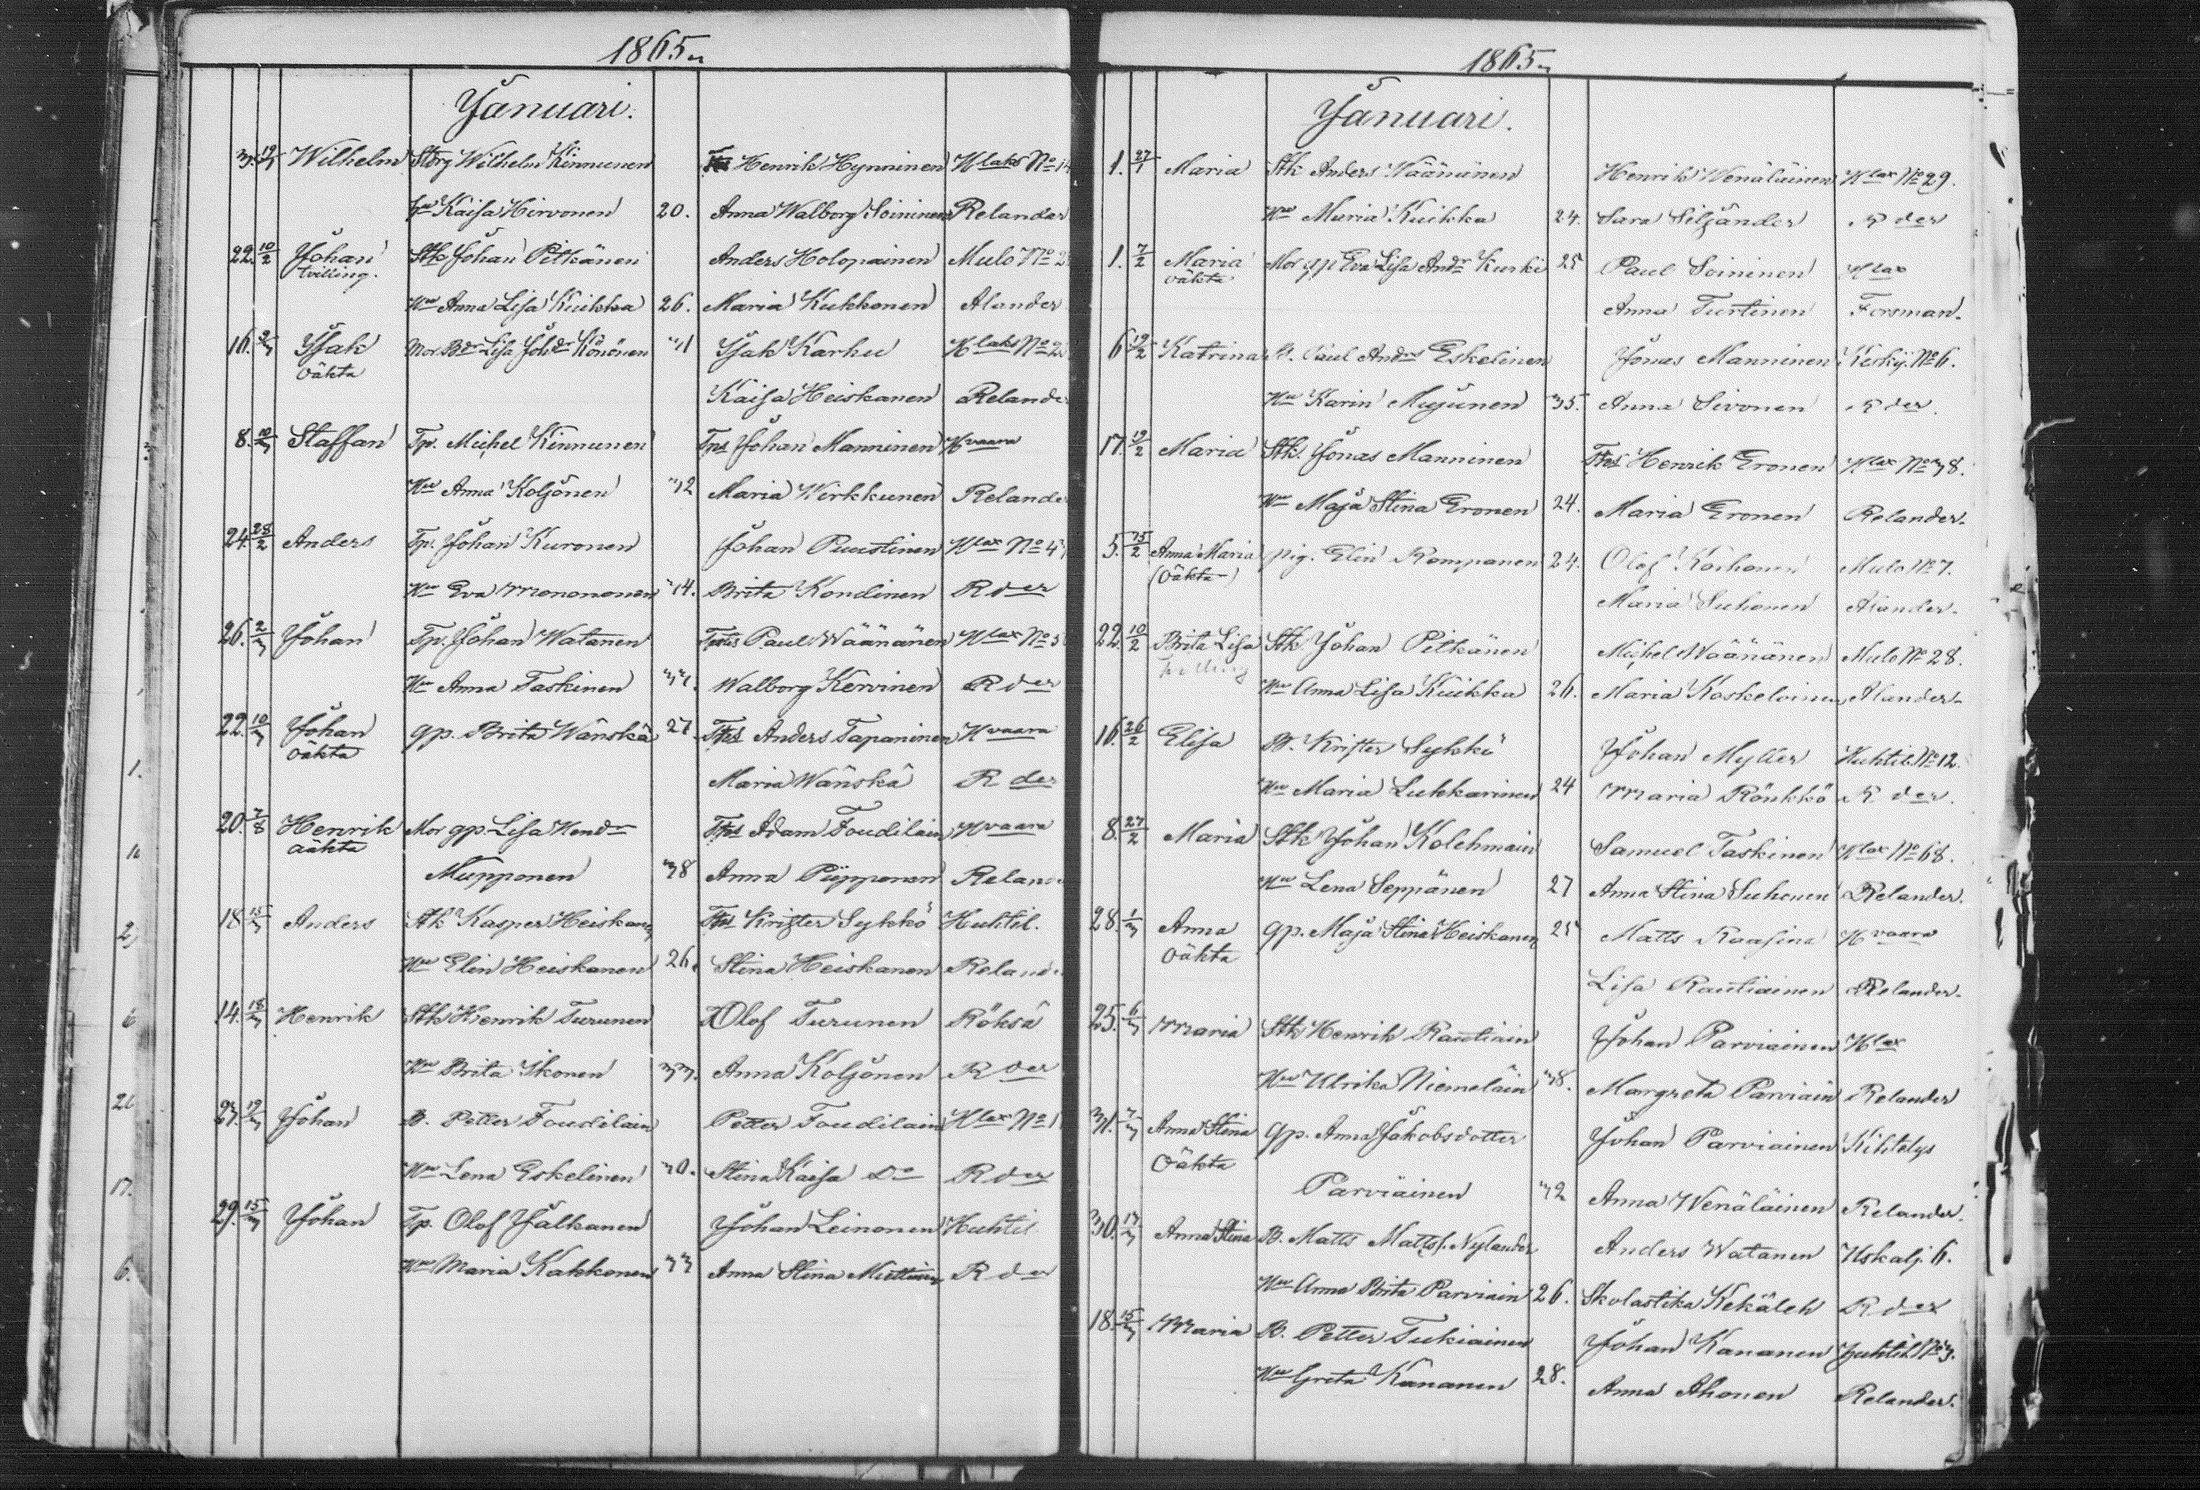 1865.
Januari.
3. 19/3 Wilhelm Storg Wilhelm Kinnunen Henrik Hynninen Klaks No 14
Hu Kaisa Hirvonen 20. Anna Walborg Soininen Relander
22. 10/2 Johan Stk Johan Pitkänen Anders Holopainen Mulo No 2
tvilling.
Hu Anna Lisa Kuikka 26. Maria Kukkonen Alander
16. 2/3 Isak Mor Bdr Lisa Johdr Könönen 31 Isak Karhu Klaks No 2
oäkta
Kaisa Heiskanen Relande
8. 10/3 Staffan Tp. Michel Kinnunen Tps Johan Manninen Kvaara
Hu Anna Koljonen 32 Maria Wirkkunen Relande
24. 28/2 Anders Tp. Johan Kuronen Johan Puustinen Klax No 4
Hu Eva Mononen 34. Brita Kondinen R der
26. 2/3 Johan Tp. Johan Watanen Paul Wäänänen Klax No 5
Hu Anna Taskinen Walborg Kervinen R der
22. 10/3 Johan gp. Brita Wänskä 27. Anders Tapaninen Kvaara
oäkta
Maria Wänskä R der
20. 7/8 Henrik Mor gp. Lisa Hendr Adam Toudilain Kvaara
oäkta
Mupponen 38 Anna Piipponen Relan
18. 15/3 Anders Stk Kasper Heiskanen Krister Sykkö Huhtil.
Hu Elin Heiskanen 26. Stina Heiskanen Reland
14. 18/3 Henrik Stk Henrik Turunen Olof Turunen Röksä
Hu Brita Ikonen 33. Anna Koljonen R der
23. 19/3 Johan B. Petter Toudilain Petter Toudilain Klax No 1
Hu Lena Eskelinen 30. Stina Kaisa Do R der
29. 15/3 Johan Tp. Olof Jalkanen Johan Leinonen Huhtil
Hu Maria Kakkonen 33 Anna Stina Miettinen R der
1865.
Januari.
1. 27/1 Maria Stk Anders Wäänänen Henrik Wenäläinen Klax No 29.
Hu Maria Kuikka 24. Sara Siljander R der
1. 7/2 Maria Mor gp Eva Lisa Andr Kurki 25 Paul Soininen Klax
oäkta
Anna Turtinen Forsman.
6 19/2 Katrina B. Paul Anders Eskelinen Jonas Manninen Keskij. No 6.
Hu Karin Mujunen 35. Anna Sivonen R der.
17. 19/2 Maria Stk. Jonas Manninen Henrik Eronen Klax No 38.
Hu Maja Stina Eronen 24. Maria Eronen Relander.
5. 15/2 Anna Maria pig. Elin Rompanen 24. Olof Korhonen Mulo No 7.
(oäkta)
Maria Suhonen Alander.
22. 10/2 Brita Lisa Stk. Johan Pitkänen Michel Wäänänen Mulo No 28.
tvilling
Hu Anna Lisa Kuikka 26. Maria Koskeloinen Alander
16. 26/2 Elisa B. Krister Sykkö Johan Myller Huhtil. No 12
Hu Maria Lukkarinen 24 Maria Rönkkö R der.
8. 27/2 Maria Stk Johan Kolehmain Samuel Taskinen Klax No 68.
Hu Lena Seppänen 27 Anna Stina Suhonen Relander.
28. 1/3 Anna gp. Maja Stina Heiskanen 25 Matts Kvaara
oäkta
Lisa Rautiainen Relander.
25. 6/3 Maria Stk Henrik Rautiain Johan Parviainen Klax
Hu Ulrika Niemeläin 38. Margreta Parviain Relander
31. 7/3 Anna Stina gp. Anna Jakobsdotter Johan Parviainen Kihtelys
Oäkta
Parviainen 32 Anna Wenäläinen Relander.
30. 13/3 Anna Stina B. Matts Matts. Nylander Anders Watanen Uskalj. 6.
Hu Anna Brita Parviain 26. Skolastika Kekäleh R der
18. 15/3 Maria B. Petter Tukiainen Johan Kananen Huhtil No 3.
Hu Greta Kananen 28. Anna Ahonen Relander.